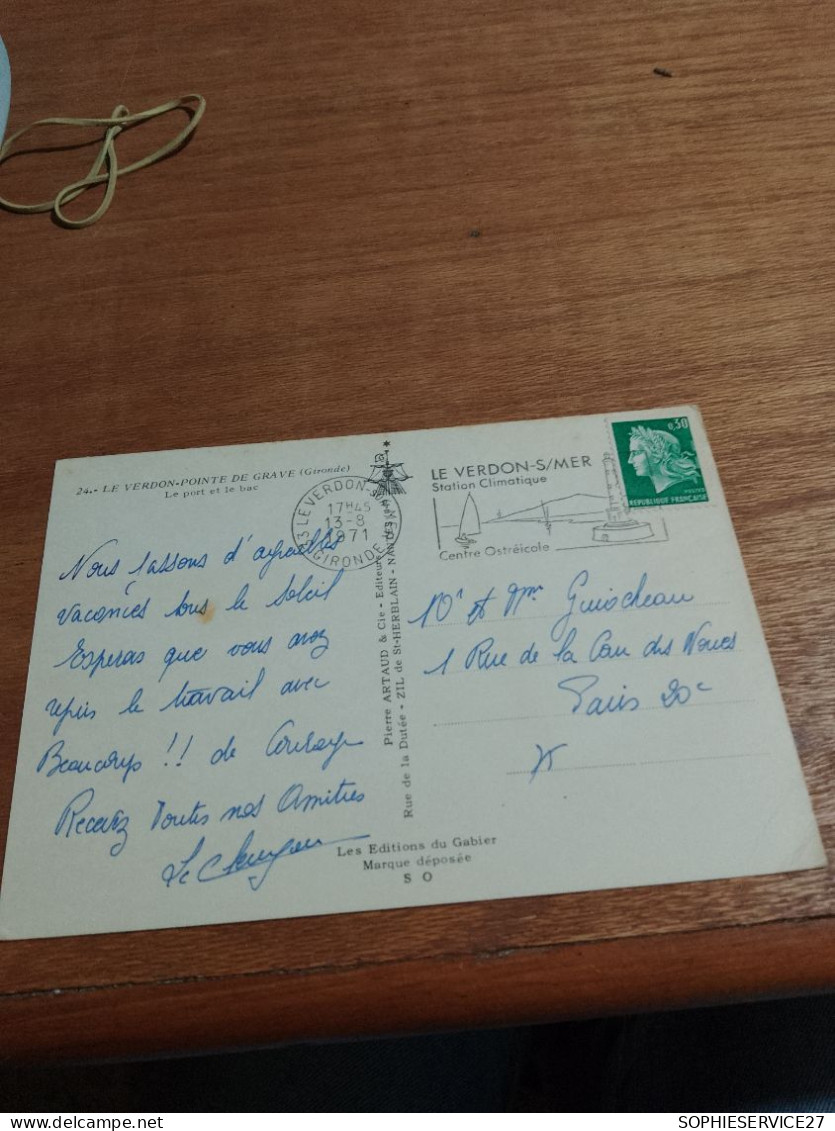 24.- LE VERDON-POINTE DE GRAVE (Gironde)
Le port et le bac
33 LE VERDON-SUR-MER
17H45
13-8
1971
GIRONDE
LE VERDON-S/MER
Station Climatique
Centre Ostréicole
0,30
REPUBLIQUE FRANÇAISE
Nous passons d'agreables
vacances sous le Soleil
Esperas que vous avez
repris le travail avec
Beaucoup !! de Courage
Recevez toutes nos Amities
Pierre ARTAUD & Cie - Editeurs
Rue de la Dutée - ZIL de St-HERBLAIN - NANTES
Mr et Mme Guiocheau
1 Rue de la Cour des Noues
Paris 20e
Les Editions du Gabier
Marque déposée
S O
SOPHIESERVICE27